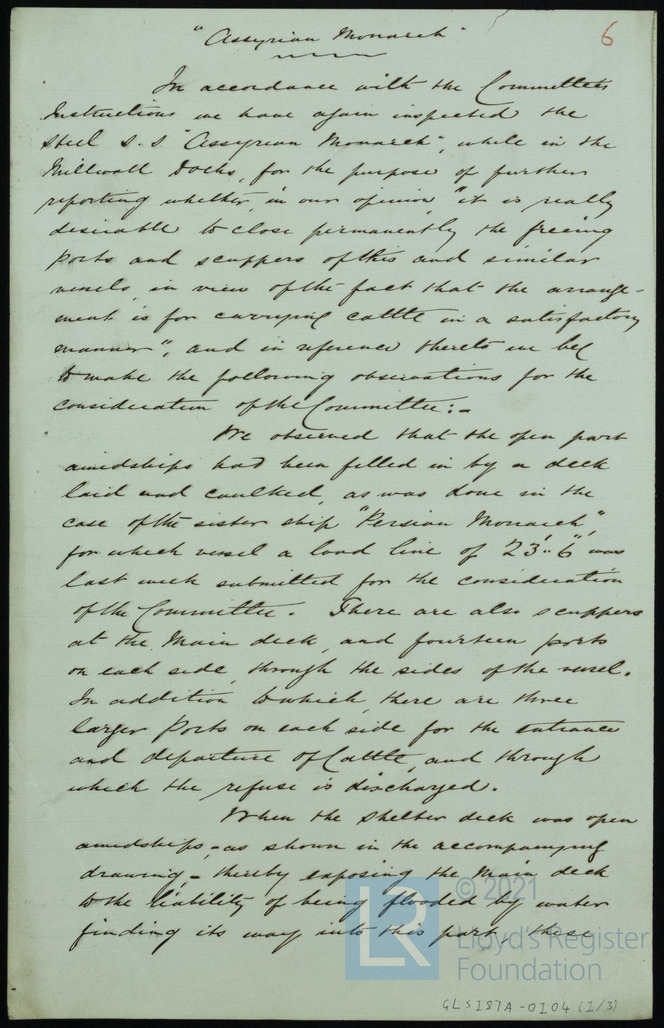 "Assyrian Monarch"
6
In accordance with the Committee's
Instructions we have again inspected the
Steel S.S "Assyrian Monarch", while in the
Millwall Docks, for the purpose of further
reporting whether, in our opinion, "it is really
desirable to close permanently the freeing
Ports and scuppers of this and similar
vessels, in view of the fact that the arrange-
ment is for carrying cattle in a satisfactory
manner", and in reference thereto we beg
to make the following observations for the
consideration of the Committee:-
We observed that the open part
amidships had been filled in by a deck
laid and caulked, as was done in the
case of the sister ship "Persian Monarch",
for which vessel a load line of 23'-6" was
last week submitted for the consideration
of the Committee. There are also scuppers
at the Main deck, and fourteen ports
on each side, through the sides of the vessel.
In addition to which, there are three
larger Ports on each side for the entrance
and departure of Cattle, and through
which the refuse is discharged.
When the shelter deck was open
amidships,-as shown in the accompanying
drawing,- thereby exposing the Main deck
to the liability of being flooded by water
finding its way into this part, these
LR
© 2021
Lloyd's Register
Foundation
GLS187A-0104 (1/3)